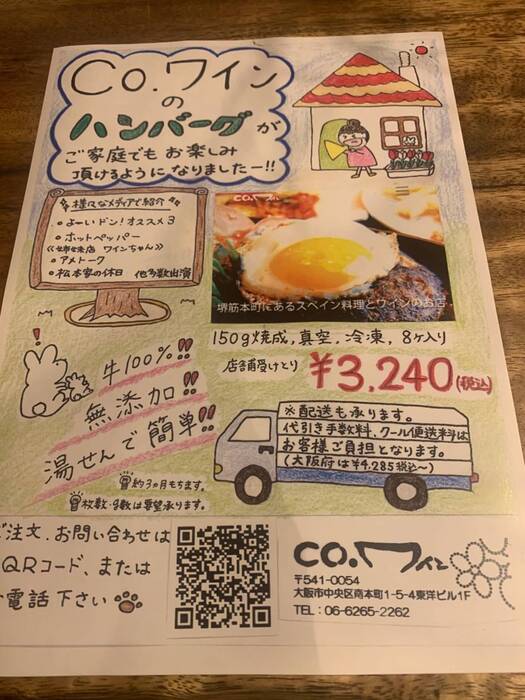 CO.ワイン
の
ハンバーグが
ご家庭でもお楽しみ
頂けるようになりましたー!!
様々なメディアで紹介
・よーいドン!オススメ3
・ホットペッパー
≪姉妹店 ワインちゃん≫
・アメトーク
・松本家の休日 他多数出演
co.ワイン
堺筋本町にあるスペイン料理とワインのお店
150g焼成,真空,冷凍,8ヶ入り
店舗受けとり ¥3,240(税込)
!
牛100%!!
無添加!!
湯せんで簡単!!
約3ヵ月もちます。
枚数・g数は要望承ります。
※配送も承ります。
代引き手数料、クール便送料は
お客様ご負担となります。
(大阪府は¥4,285税込〜)
ご注文、お問い合わせは
QRコード、または
お電話下さい
co.ワイン
〒541-0054
大阪市中央区南本町1-5-4東洋ビル1F
TEL: 06-6265-2262